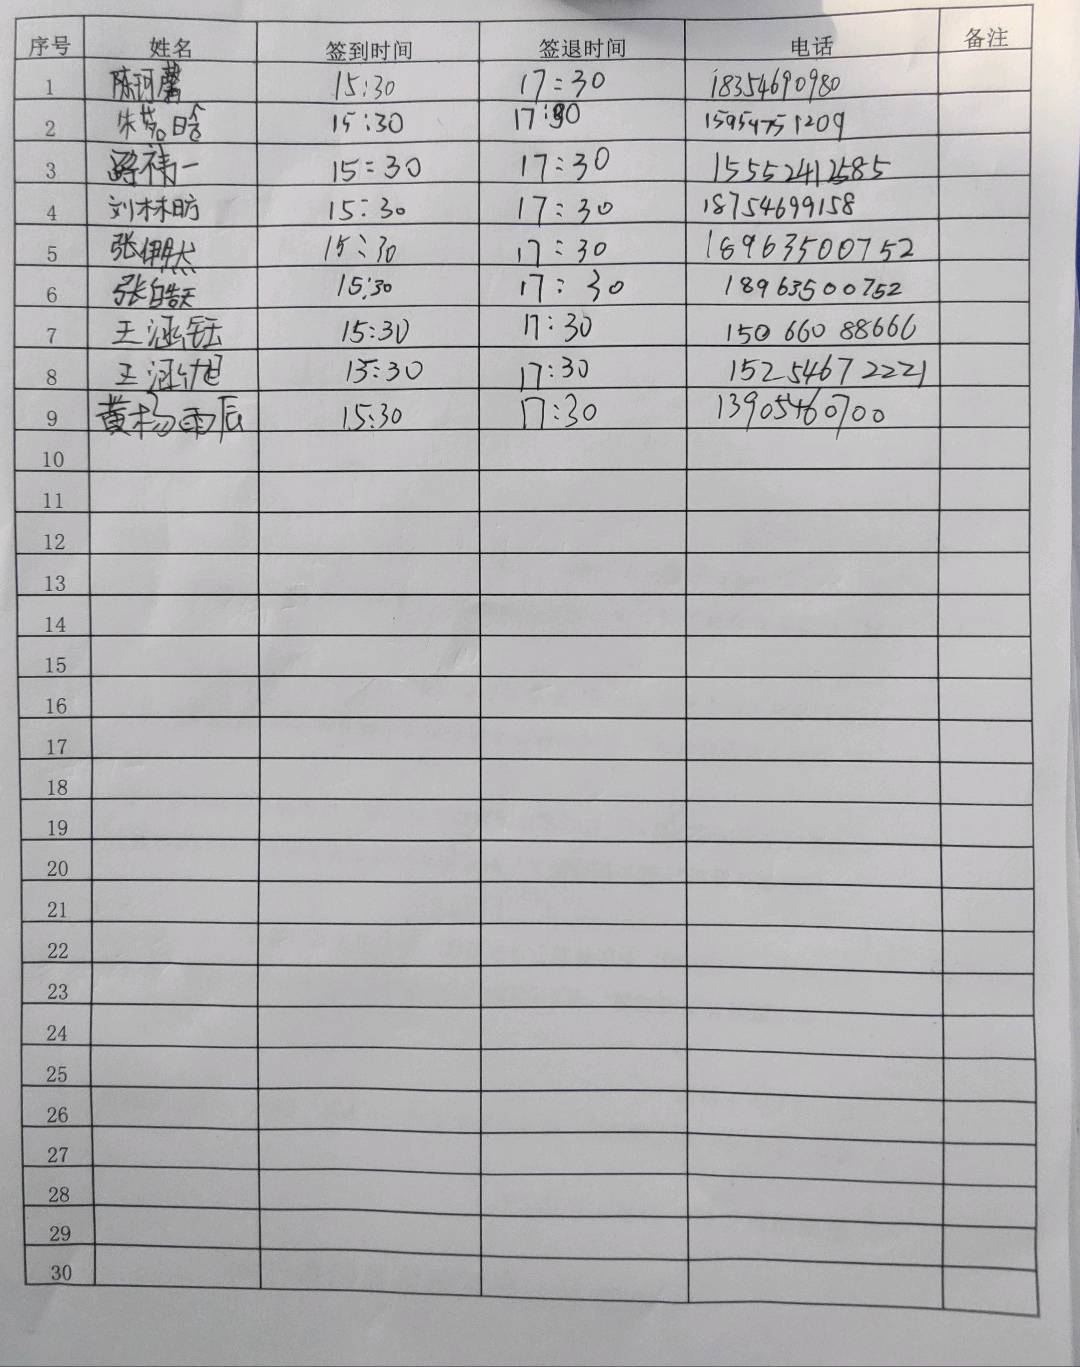 序号 姓名 签到时间 签退时间 电话 备注
1 陈珂馨 15:30 17:30 18354690980
2 朱梦晗 15:30 17:30 15954751209
3 祎一 15:30 17:30 15552412585
4 刘林昉 15:30 17:30 18754699158
5 张伊然 15:30 17:30 18963500752
6 张皓天 15:30 17:30 18963500752
7 王涵钰 15:30 17:30 150 660 88666
8 王涵旭 15:30 17:30 15254672221
9 黄杨雨辰 15:30 17:30 13905460700
10
11
12
13
14
15
16
17
18
19
20
21
22
23
24
25
26
27
28
29
30